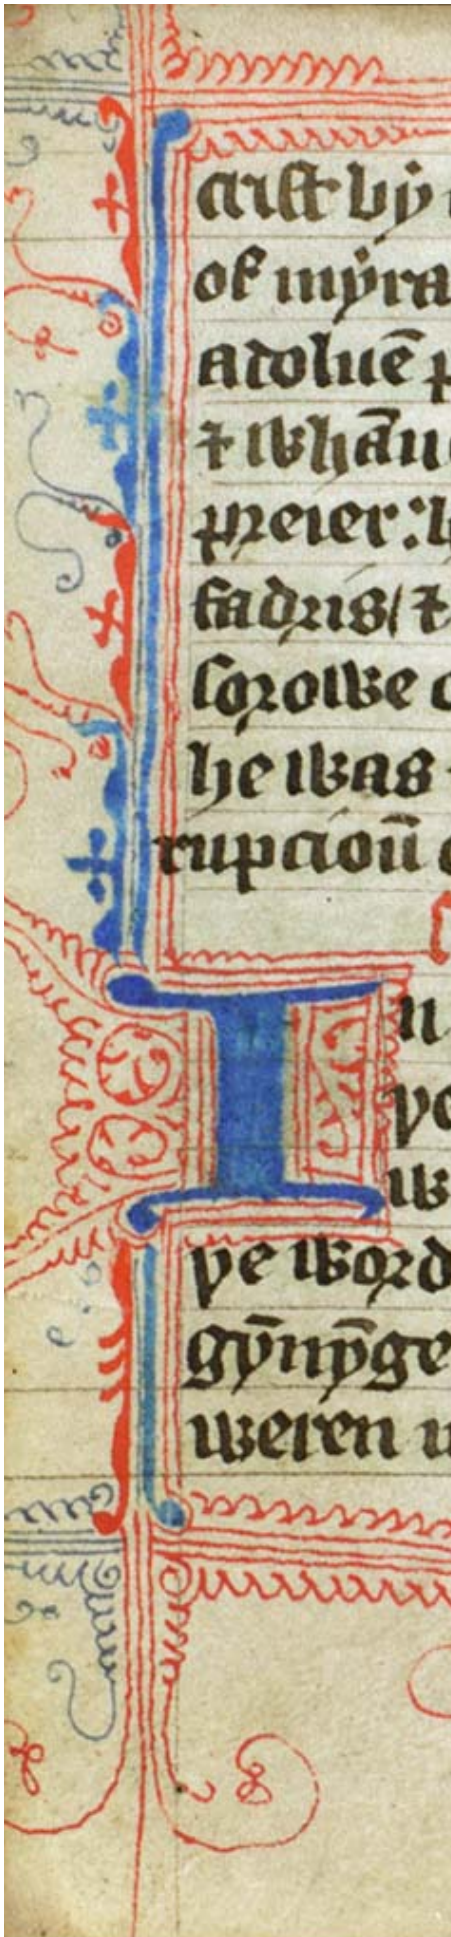 crist bi
of myra
a doluen
⁊ whanne
preier: h
fadris/ ⁊
sorowe o
he was
rupcioū o
In
ye
w
ye word
gȳnȳge
weren w